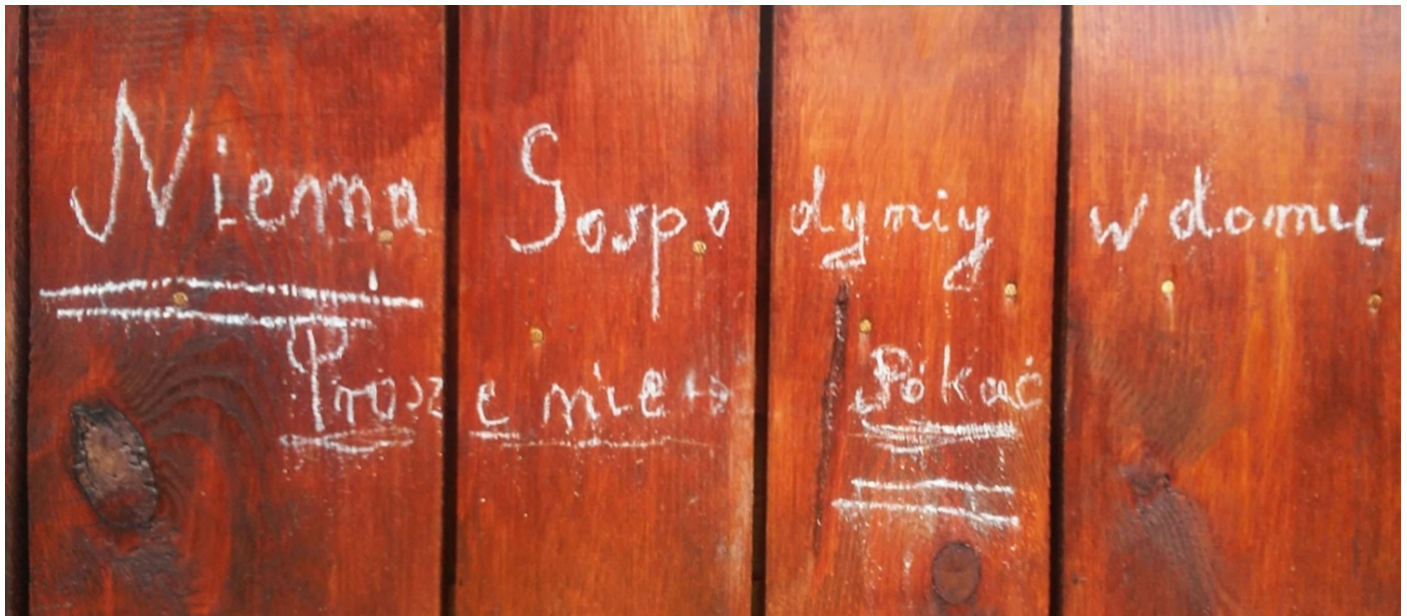 Niema Gospodyniy w domu
Prosze nie Pókać